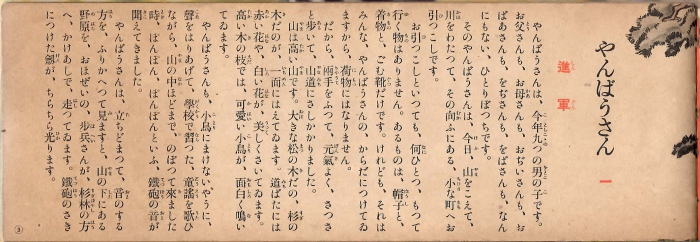 やんばうさん 一
進軍
やんばうさんは、今年九つの男の子です。
お父さんも、お母さんも、おぢいさんも、お
ばあさんも、をぢさんも、をばさんも、なん
にもない、ひとりぼつちです。
そのやんばうさんは、今日、山をこえて、
川をわたつて、その向ふにある、小さな町へお
引つこしです。
お引つこしといつても、何ひとつ、もつて
行く物はありません。あるものは、帽子と、
着物と、ごむ靴だけです。けれども、それは
みんな、やんばうさんの、からだにつけてゐ
ますから、荷物にはなりません。
だから、兩手をふつて、元氣よく、さつさ
と歩いて、山道にさしかかりました。
山は高い山です。大きな松の木だの、杉の
木だのが、一面にはえてゐます。道ばたには
赤い花や、白い花が、美しくさいてゐます。
高い木の枝では、可愛い小鳥が、面白く鳴い
てゐます。
やんばうさんも、小鳥にまけないやうに、
聲をはりあげて、學校で習つた、童謠を歌ひ
ながら、山の中ほどまで、のぼつて來ました
時、ぽんぽん、ぽんぽんといふ、鐵砲の音が
聞えてきました。
やんばうさんは、立ちどまつて、音のする
方を、ふりかへつて見ますと、山の下にある
野原を、おほぜいの、歩兵さんが、杉林の方
へ、かけあしで、走つてゐます。鐵砲のさき
につけた劍が、ちらちら光ります。
③